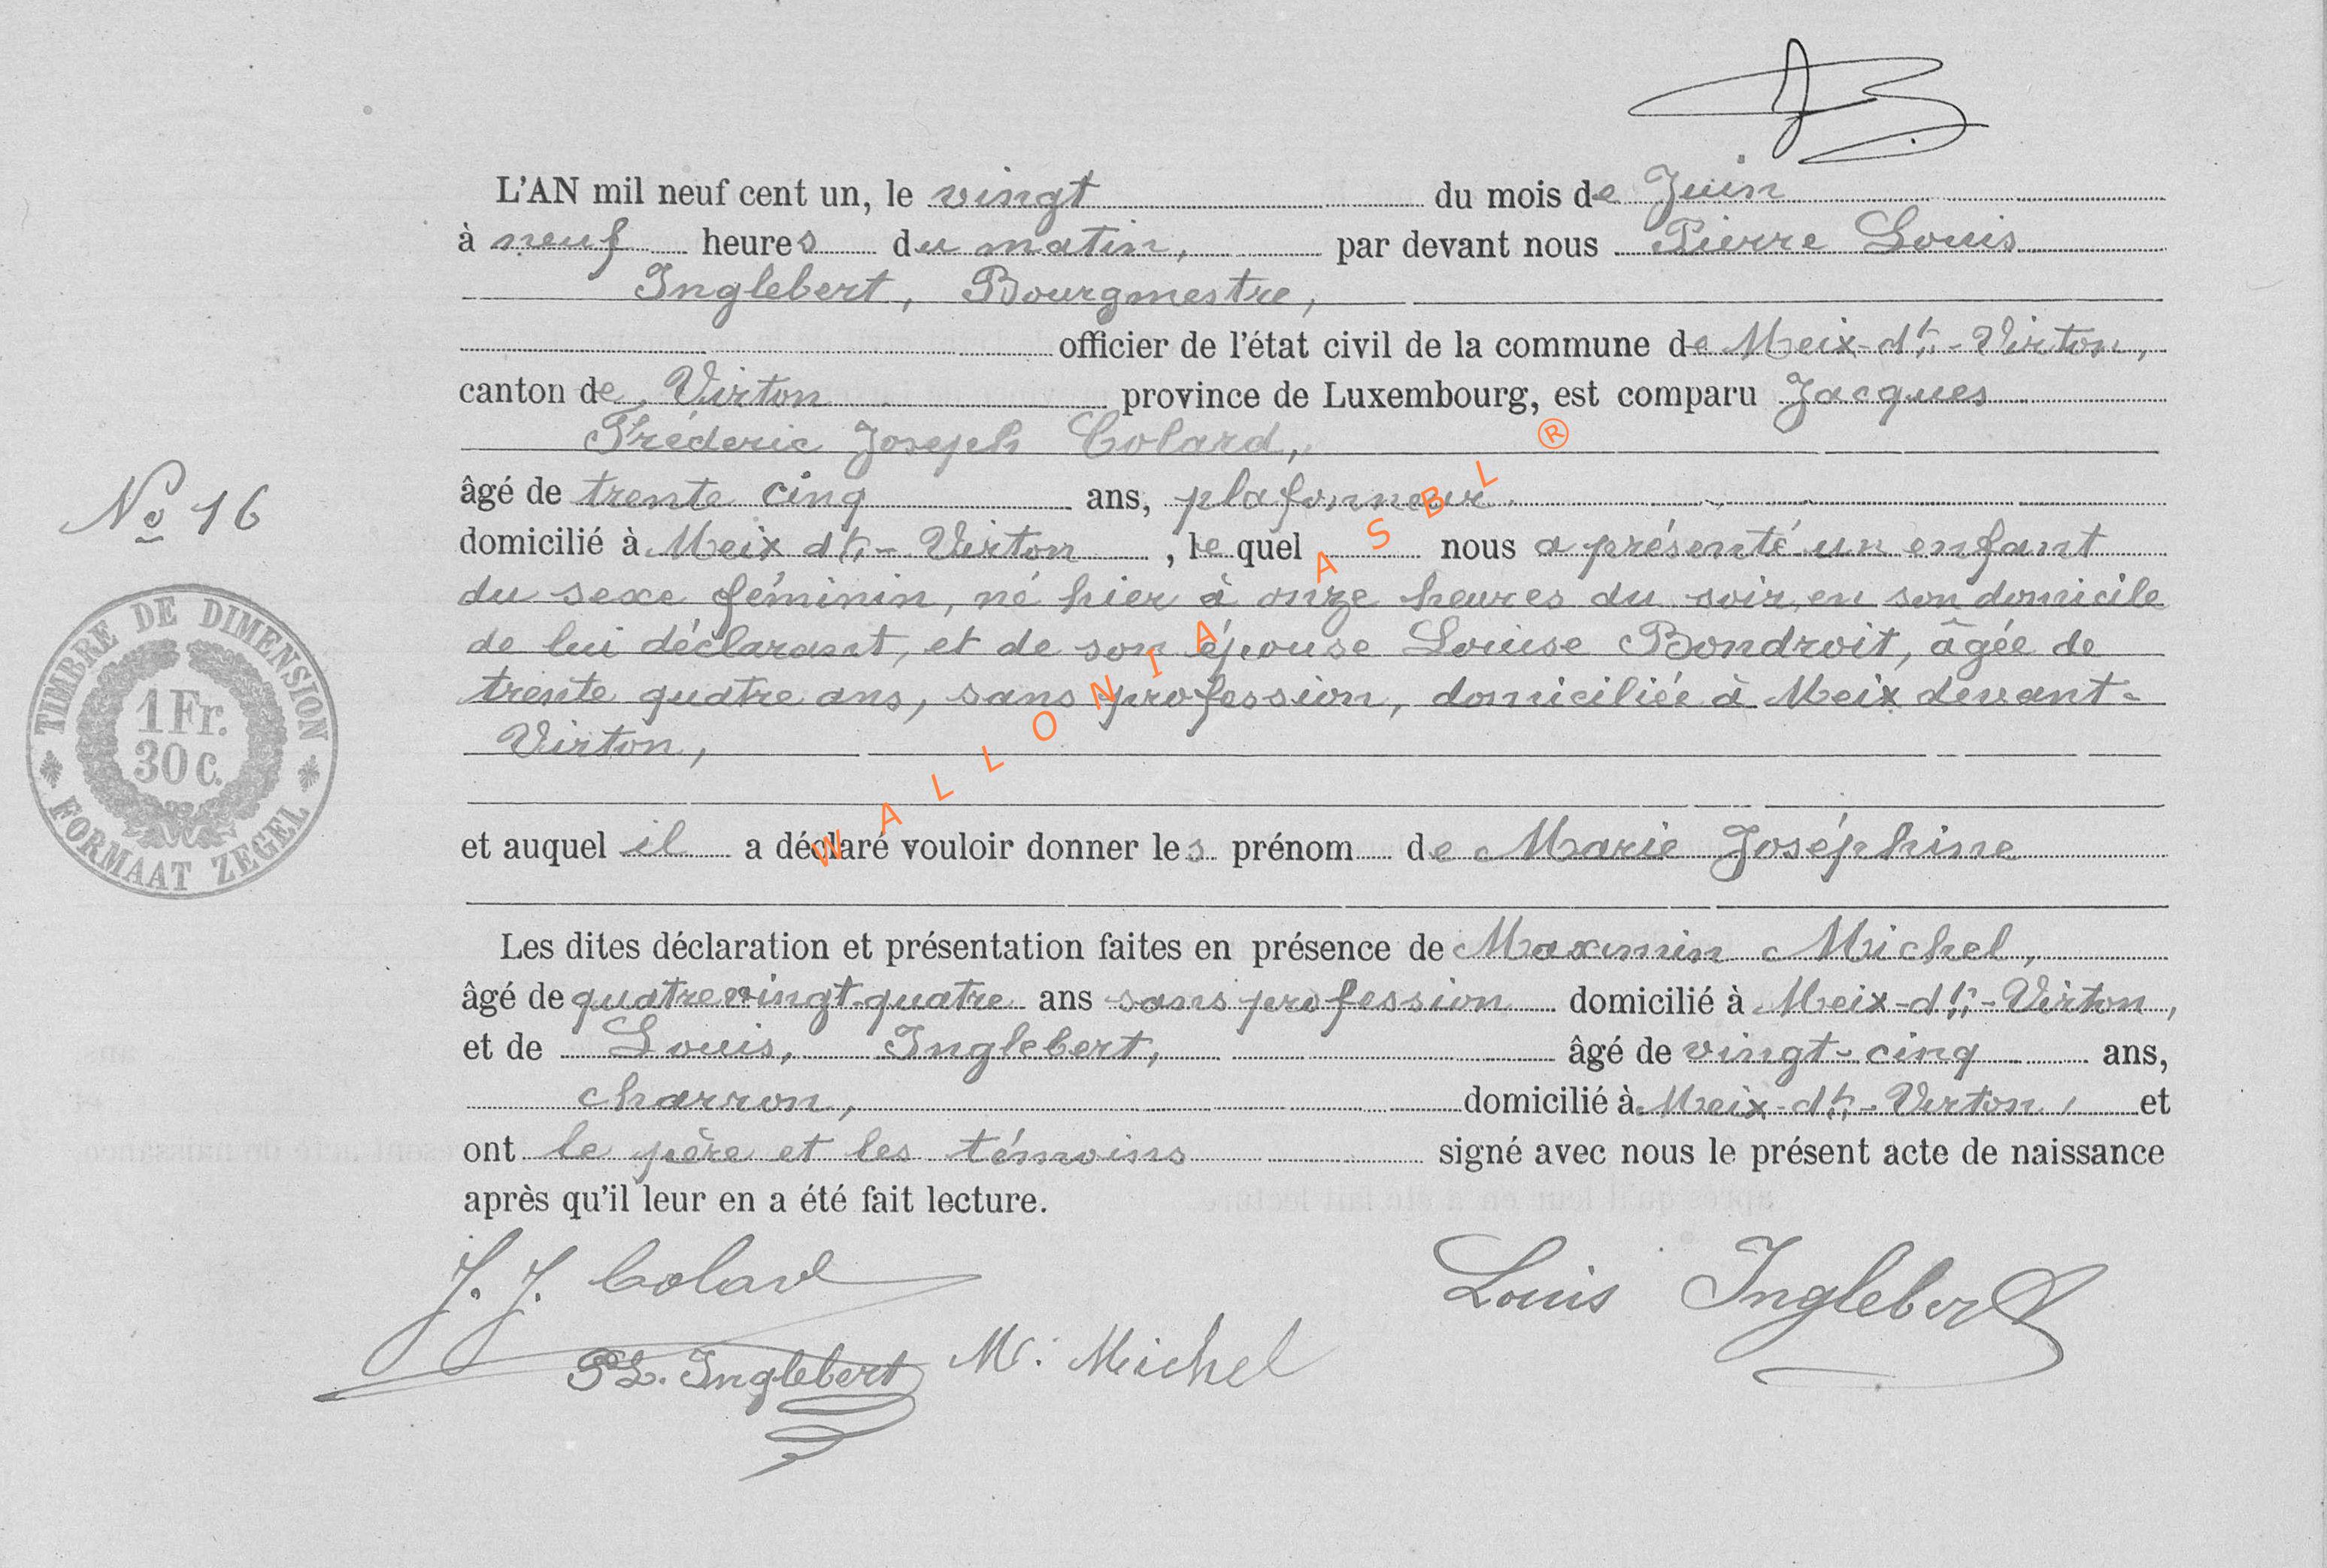 L'AN mil neuf cent un, le vingt du mois de Juin
à neuf heures du matin, par devant nous Pierre Louis
Inglebert, Bourgmestre,
officier de l'état civil de la commune de Meix-dt-Virton,
canton de Virton province de Luxembourg, est comparu Jacques
Fréderic Joseph Colard,
âgé de trente cinq ans, plafonneur
N° 16
domicilié à Meix dt- Virton, le quel nous a présenté un enfant
du sexe féminin, né hier à onze heures du soir, en son domicile
de lui déclarant, et de son épouse Louise Bondroit, âgée de
trente quatre ans, sans profession, domiciliée à Meix devant-
Virton,
TIMBRE DE DIMENSION
1 Fr.
30 c.
FORMAAT ZEGEL
et auquel il a déclaré vouloir donner les prénom de Marie Joséphine
Les dites déclaration et présentation faites en présence de Maximin Michel,
âgé de quatrevingt-quatre ans sans profession domicilié à Meix-dt-Virton,
et de Louis, Inglebert, âgé de vingt-cinq ans,
charron, domicilié à Meix-dt-Virton, et
ont le père et les témoins signé avec nous le présent acte de naissance
après qu'il leur en a été fait lecture.
J. J. Colard
Louis Inglebert
PL. Inglebert M. Michel
WALLONIA ASBL ®